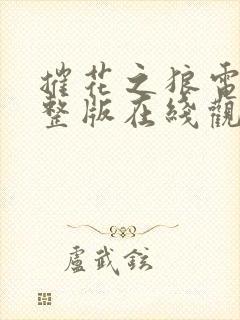 摧花之狼電
整版在綫觀
盧武鉉